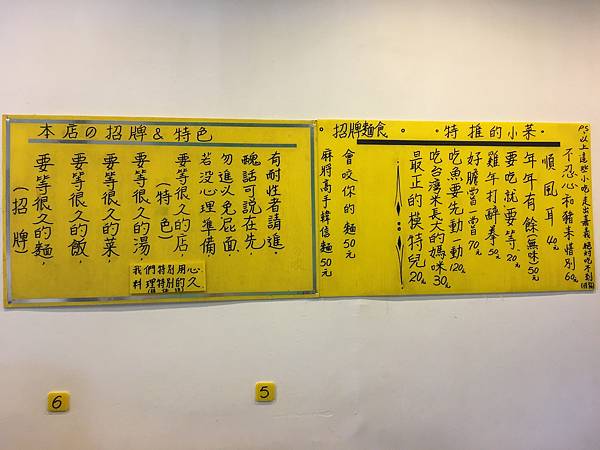 本店の招牌&特色
有耐性者請進，
醜話可說在先，
勿進以免屁面．
若沒心理準備
要等很久的店
(特色)
要等很久的湯
要等很久的菜，
要等很久的飯，
要等很久的麵，
(招牌)
我們特別用心
料理特別的久
招牌麵食
特推的小菜
P.S以上這些小吃走出嘉義 絕對吃不到
不忍心和豬來惜別60元
順風耳 40元
年年有餘無味50元
要吃就要等20元
雞午打醉拳50元
好膽嘗一嘗70元
吃魚要先動一動120元
吃台灣米長大的媽咪30元
最正的模特兒20元
會咬你的麵50元
麻將高手韓信麵50元
6
5